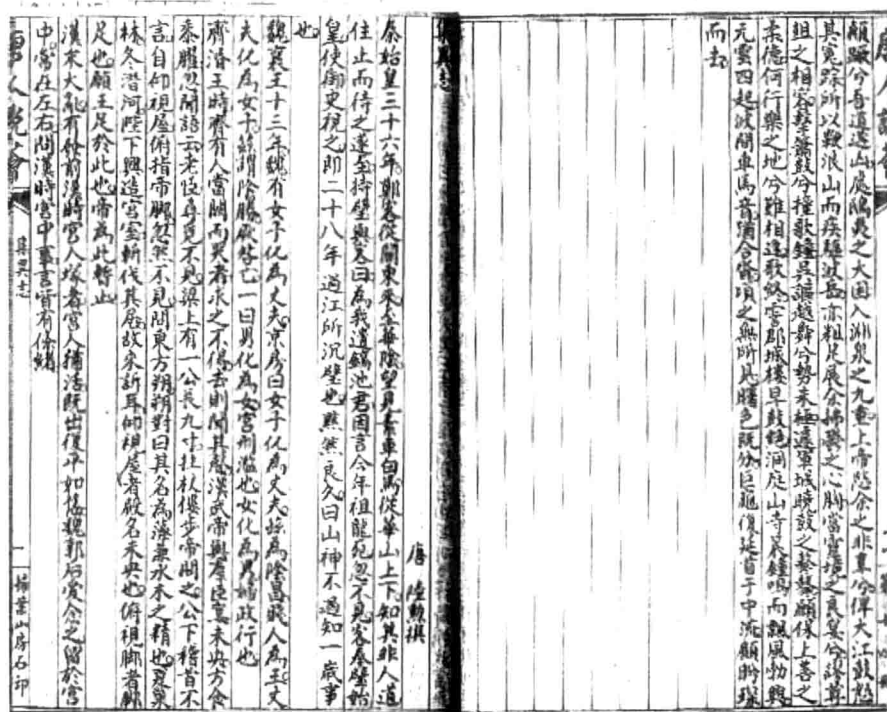 唐人說薈
顛蹶兮吾道遑凶處鴟夷之大困入淵泉之九重上帝愍余之非辜兮俾大江鼓怒
其冤踪所以鞭浪山而疾驅波岳亦粗足展余拂鬱之心胸當靈境之良宴兮謬尊
俎之相容擊簫鼓兮撞歌鐘吳謳越舞兮勢未極遽軍城曉鼓之鼕鼕願保上善之
柔德何行樂之地兮難相逢歌終雲郡城樓早鼓絕洞庭山寺晨鐘鳴而飄風勃興
元雲四起波間車馬音猶合沓頃之無所見曙色既分巨龜復延首于中流顧眄琛
而去
集異志
唐 陸勳撰
秦始皇三十六年鄭客從關東來至華陰望見素車白馬從華山上下知其非人道
住止而待之遂至持璧與客曰為我遺鎬池君因言今年祖龍死忽不見客奉璧始
皇使御史視之即二十八年過江所沉璧也默然良久曰山神不過知一歲事
也
魏襄王十三年魏有女子化為丈夫京房曰女子化為丈夫茲為陰昌賤人為王丈
夫化為女子茲謂陰勝厥咎亡一曰男化為女宮刑濫也女化為男婦政行也
齊湣王時齊有人當闕而哭者求之不得去則聞其聲漢武帝與羣臣宴未央方食
黍臛忽聞語云老臣尋覓不見梁上有一公長九寸拄杖僂步帝問之公下稽首不
言自仰視屋俯指帝腳忽然不見問東方朔朔對曰其名為藻兼水木之精也夏巢
林冬潛河陛下興造宮室斬伐其居故來訴耳仰視屋者殿名未央也俯視腳者腳
足也願王足於此也帝為此暫止
漢末大亂有發前漢時宮人塚者宮人猶活既出復平如舊魏郭后愛念之留於宮
中常在左右問漢時宮中事言皆有條緒
唐人說薈
集異志
一
掃葉山房石印